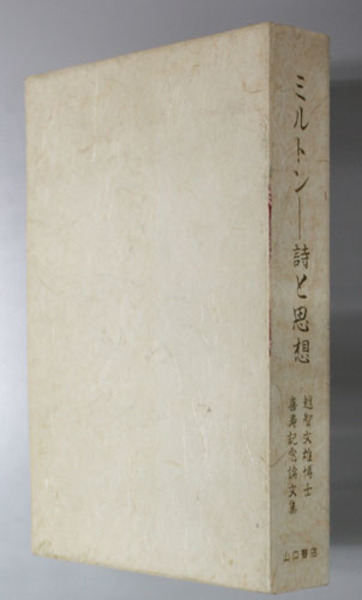 ミルトン―詩と思想
越智文雄博士
喜寿記念論文集
山口書店